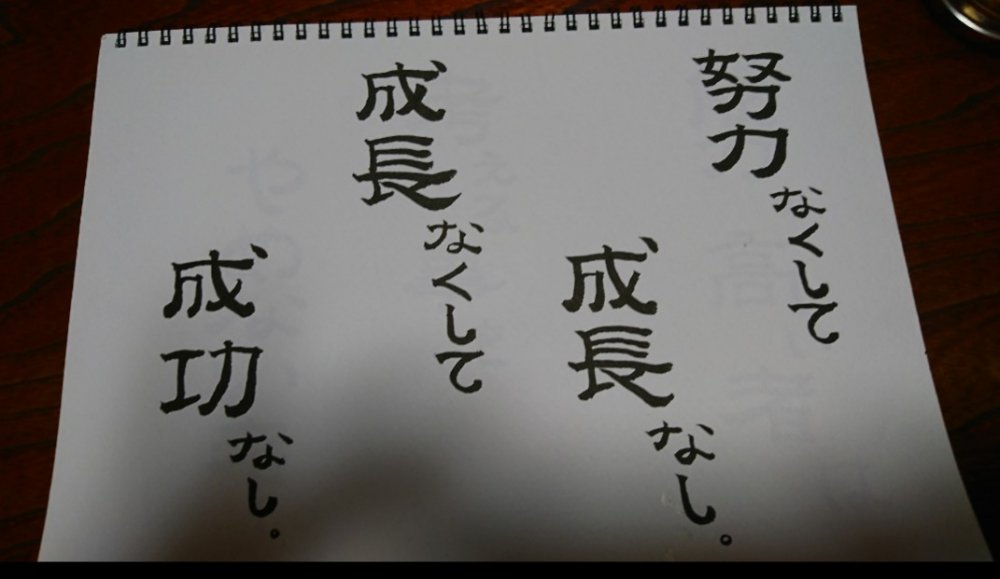 努力なくして
成長なし。
成長なくして
成功なし。